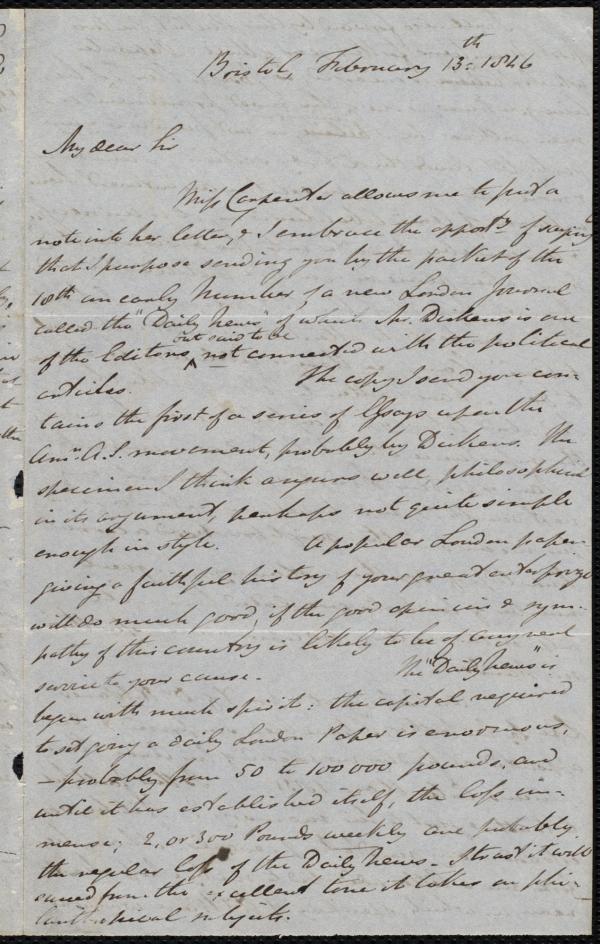 Bristol, February 13th 1846
My dear Sir
Miss Carpenter allows me to put a
note into her letter, & I embrace the opporty. of saying
that I purpose sending you by the packet of the
18th an early number of a new London Journal
called the "Daily News" of which Mr. Dickens is one
of the Editors, but said to be not connected with the political
articles. The copy I send you con-
tains the first of a series of Essays upon the
Amn. A.S. movement, probably by Dickens. The
specimen I think augurs well, philosophical
in its argument, perhaps not quite simple
enough in style. A popular London paper
giving a faithful history of your great enterprize
will do much good, if the good opinion & sym-
pathy of this country is likely to be of any real
service to your cause. The "Daily News" is
begun with much spirit: the capital required
to set going a daily London Paper is enormous,
– probably from 50 to 100 000 pounds, and
until it has established itself, the loss im-
mense; 2, or 300 Pounds weekly are probably
the regular loss of the Daily News. I trust it will
succeed from the excellent tone it takes on phi-
lanthropical subjects.